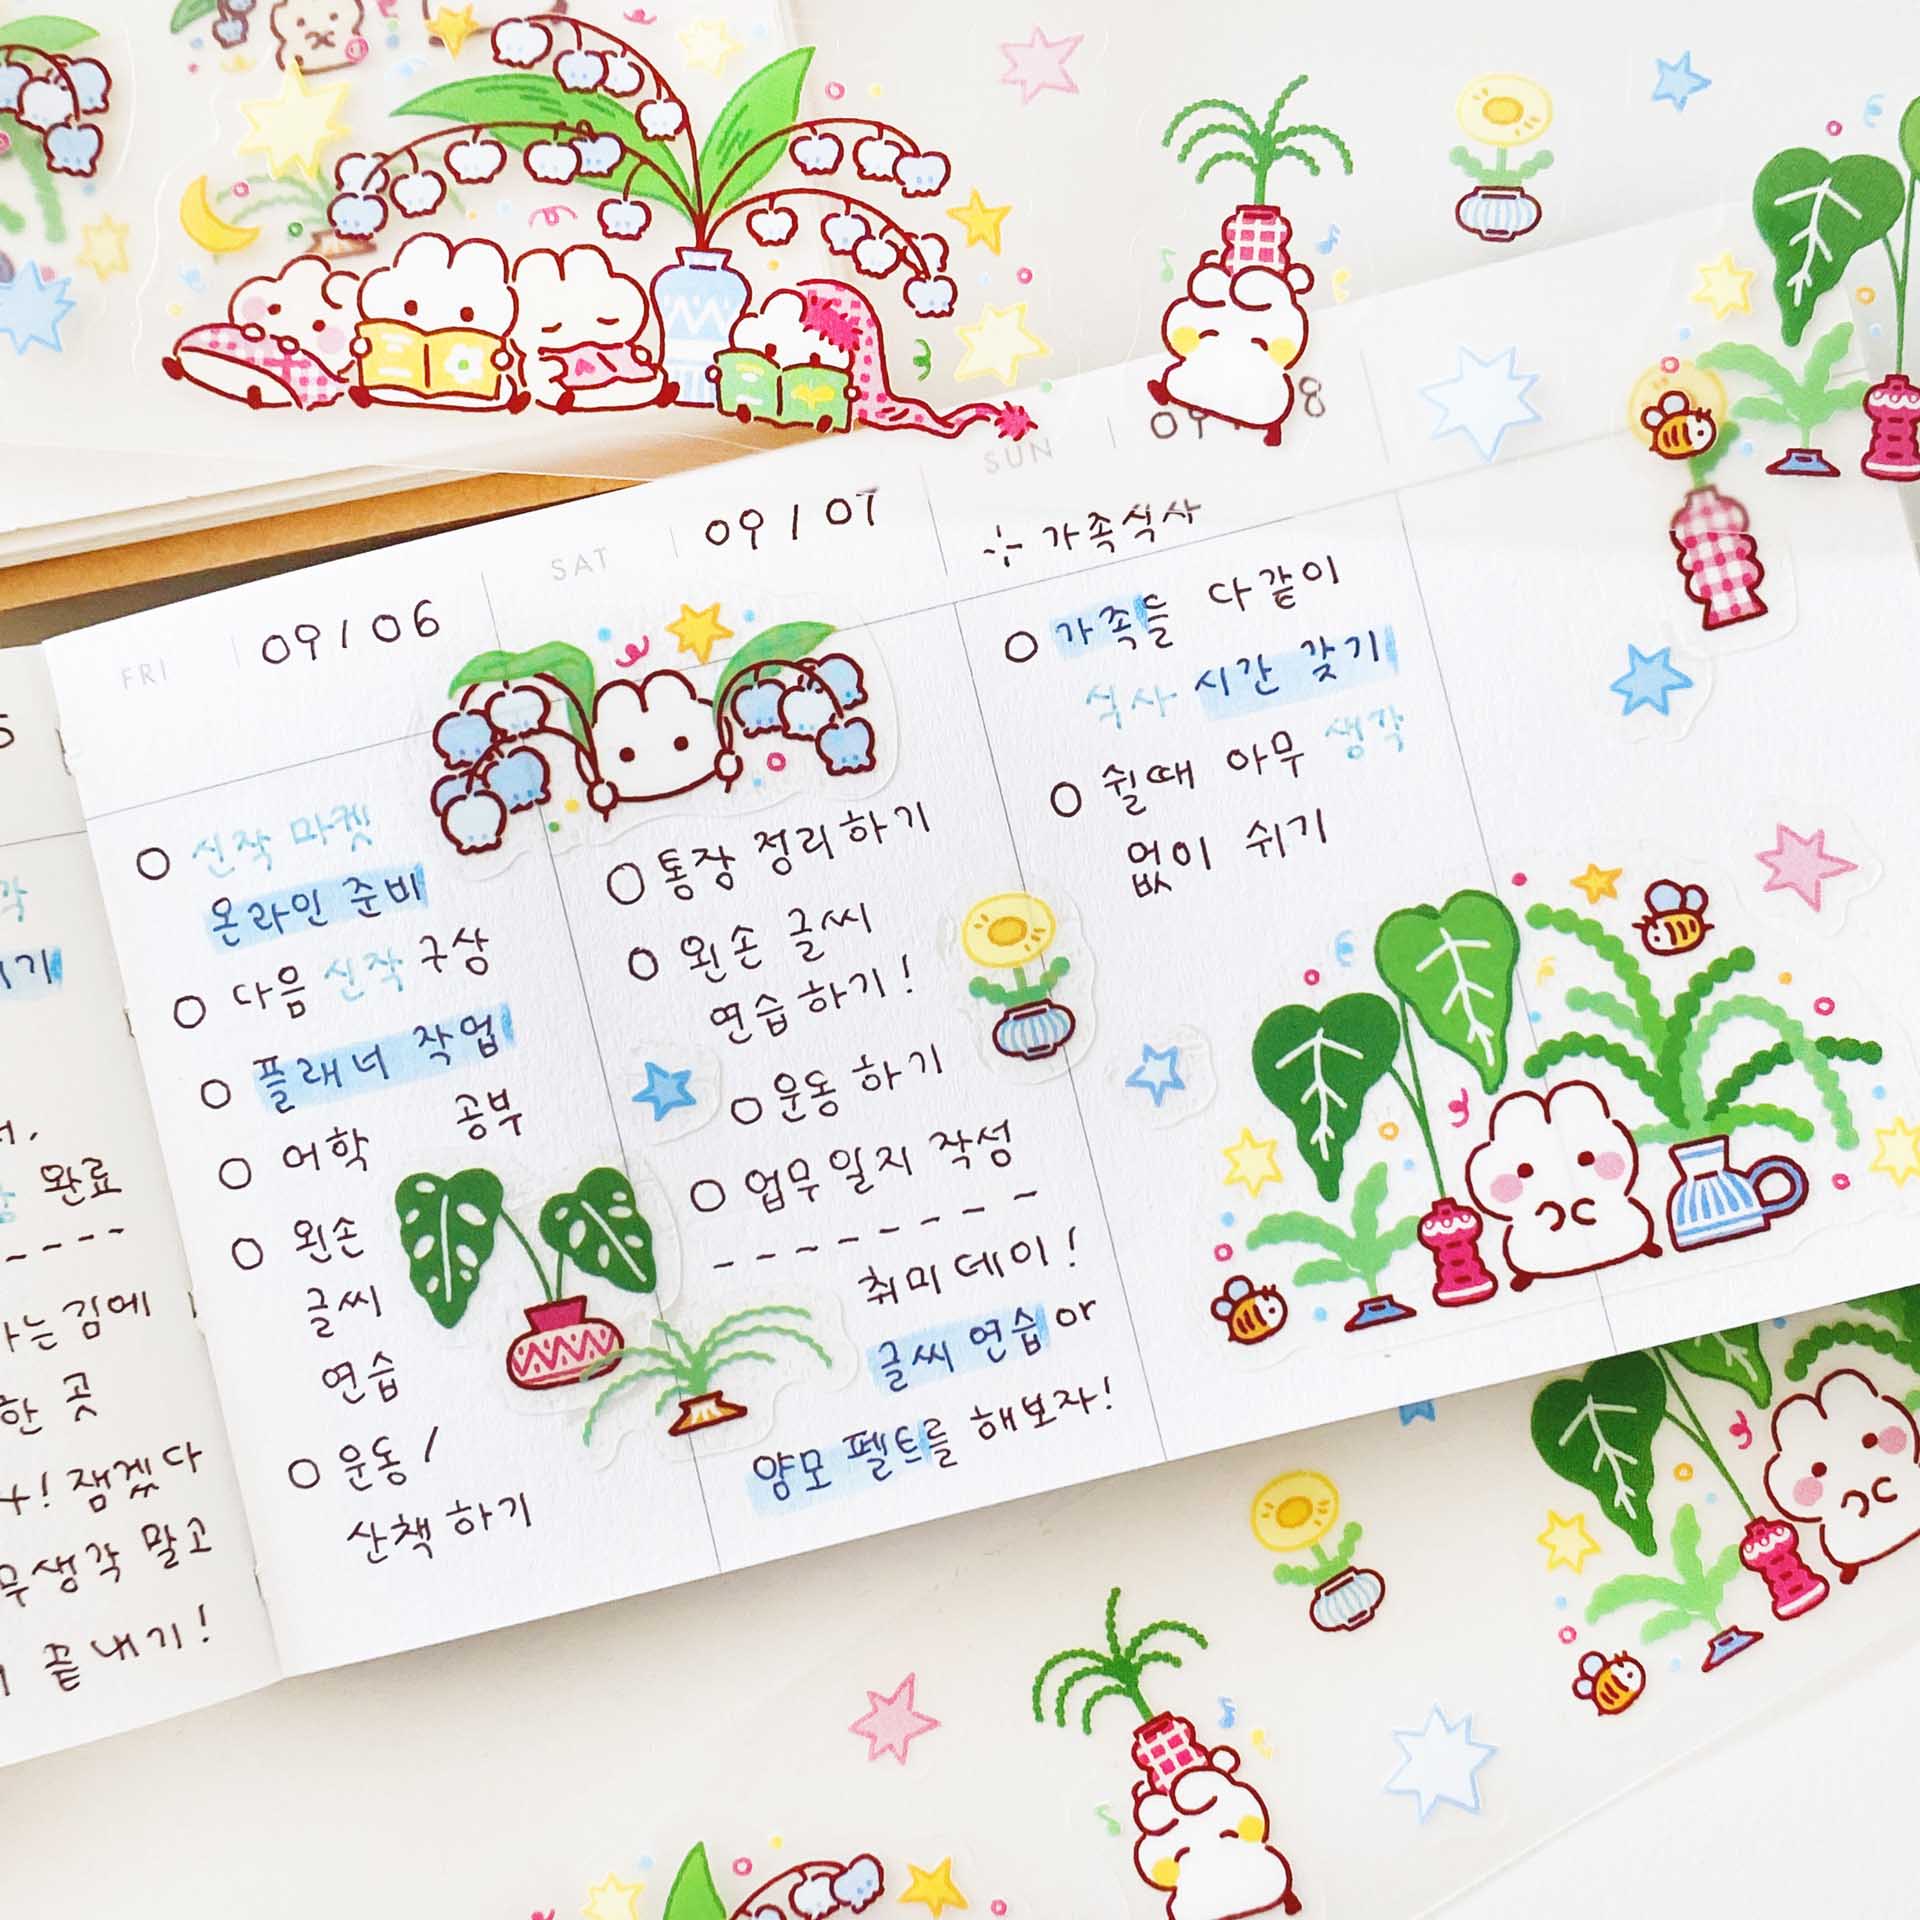 FRI
09/06
○ 신작 마켓
온라인 준비
○ 다음 신작 구상
○ 플래너 작업
○ 어학 공부
○ 왼손
글씨
연습
○ 운동/
산책 하기
SAT
09/07
○ 통장 정리하기
○ 왼손 글씨
연습하기!
○ 운동 하기
○ 업무일지 작성
-------
취미데이!
글씨 연습 or
양모 펠트를 해보자!
SUN
09 8
가족식사
○ 가족들 다같이
식사 시간 갖기
○ 쉴때 아무 생각
없이 쉬기
완료
----
는김에
한 곳
! 잼겠다
무생각 말고
끝내기!